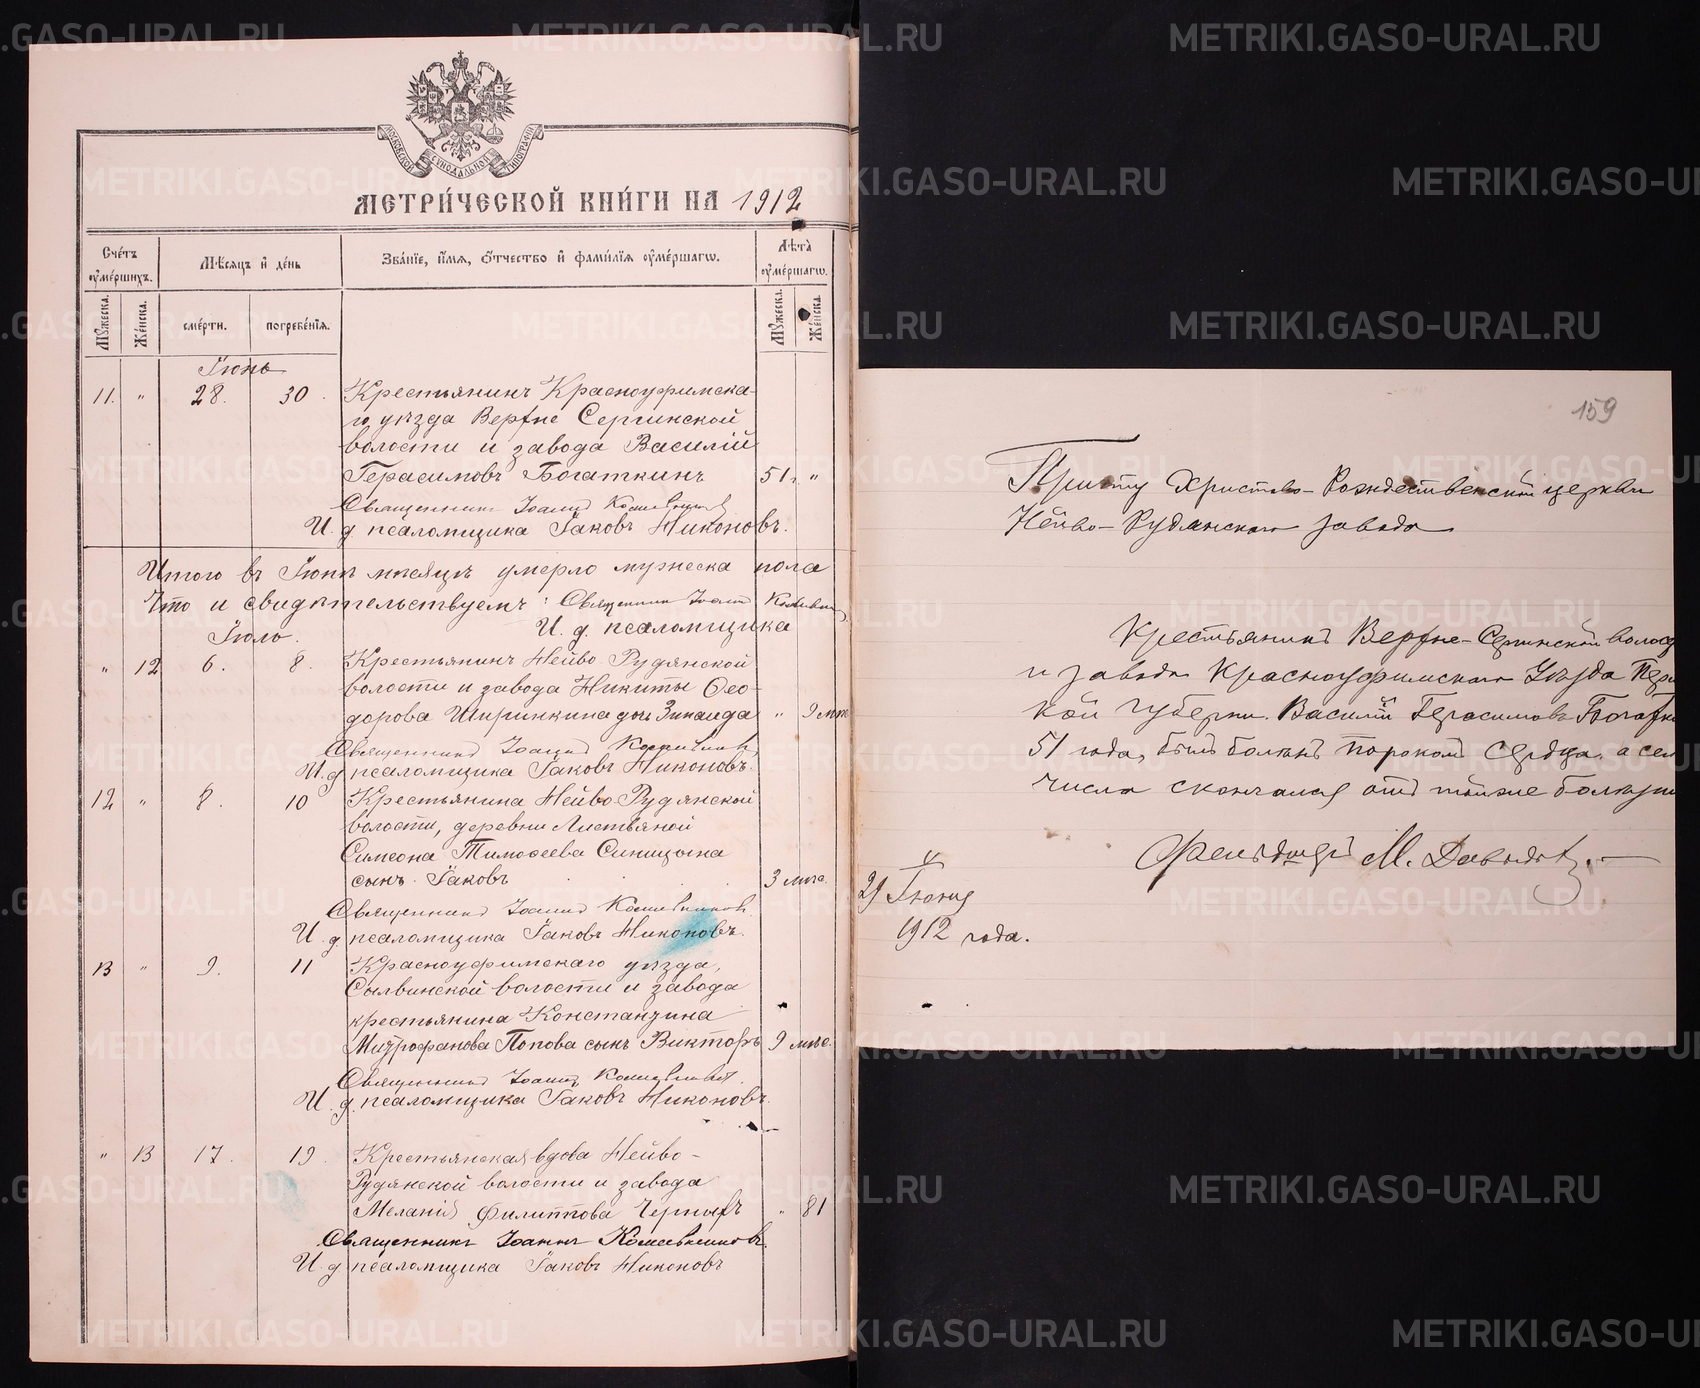 МОСКОВСКОЙ СУНОДАЛЬНОЙ ТИПОГРАФІИ
МЕТРИ́ЧЕСКОЙ КНИ́ГИ НА 1912
Сче́тъ ѹме́ршихъ.
Мѣ́сяцъ и҆ де́нь
Зва́нїе, и҆́мѧ, ѻ҆́тчество и҆ фами́лїѧ ѹме́ршагѡ.
Лѣ́та ѹме́ршагѡ.
Мꙋ́жеска.
Же́нска.
сме́рти.
погребе́нїѧ.
Мꙋ́жеска.
Же́нска.
Іюнь
11. " 28. 30. Крестьянинъ Красноуфимска-
го уѣзда Верхне Сергинской
волости и завода Василій
Герасимовъ Богаткинъ 51 г. "
Священникъ Іоаннъ
И. д. псаломщика Іаковъ Никоновъ.
Итого въ Іюнѣ мѣсяцѣ умерло мужеска пола
Что и свидѣтельствуемъ: Священникъ Іоаннъ
И. д. псаломщика
Іюль.
" 12 6. 8. Крестьянинъ Нейво Рудянской
волости и завода Никиты Ѳео-
дорова Ширинкина дочь Зинаида " 9 мѣс
Священникъ Іоаннъ
И. д. псаломщика Іаковъ Никоновъ.
12 " 8. 10 Крестьянина Нейво-Рудянской
волости, деревни Листвяной
Симеона Тимоѳеева Синицына
сынъ Іаковъ 3 мѣс.
Священникъ Іоаннъ
И. д. псаломщика Іаковъ Никоновъ.
13 " 9. 11 Красноуфимскаго уѣзда,
Сылвинской волости и завода
крестьянина Константина
Митрофанова Попова сынъ Викторъ 9 мѣс.
Священникъ Іоаннъ
И. д. псаломщика Іаковъ Никоновъ.
" 13 17. 19. Крестьянская вдова Нейво-
Рудянской волости и завода
Меланія Филиппова Черныхъ " 81
Священникъ Іоаннъ
И. д. псаломщика Іаковъ Никоновъ
159
Причту Христово-Рождественской церкви
Нейво-Рудянскаго завода
Крестьянинъ Верхне-Сергинской волос
и завода Красноуфимскаго Уѣзда Пер
кой губерни. Василій Герасимовъ Богатк
51 года, былъ боленъ порокомъ сердца, а сег
числа скончался отъ той же болѣзни
Фельдшеръ М.
29 Іюня
1912 года.
METRIKI.GASO-URAL.RU